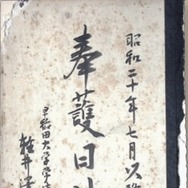 昭和二十年七月以降
奉護日誌
早稲田大学
軽井澤